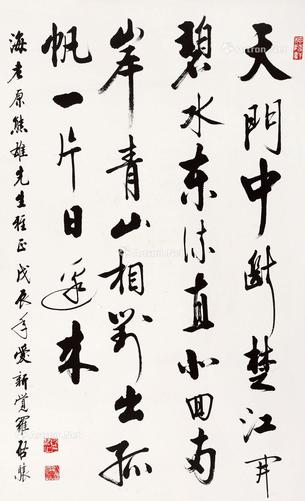 天門中斷楚江開
碧水東流直北回兩
岸青山相對出孤
帆一片日邊來
海老原熊雄先生雅正 戊辰年愛新覺羅啓驤